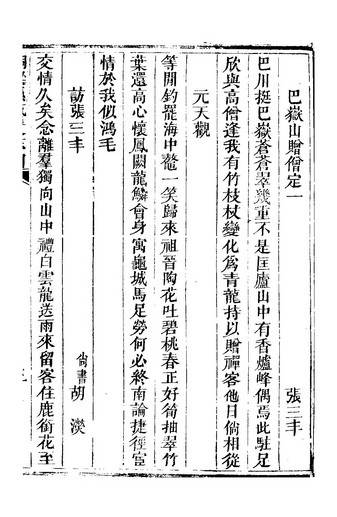 巴嶽山贈僧定一　張三丰
巴川挺巴嶽蒼蒼翠幾重不是匡廬山中有香爐峰偶焉此駐足
欣與高僧逢我有竹枝杖變化爲青龍持以贈禪客他日倘相從
元天觀
等閒釣罷海中鼇一笑歸來祖晉陶花吐碧桃春正好筍抽翠竹
葉還高心懷鳳闕龍鱗會身寓龜城馬足勞何必終南論捷徑宦
情於我似鴻毛
訪張三丰　尙書胡濙
交情久矣念離羣獨向山中禮白雲龍送雨來留客住鹿銜花至